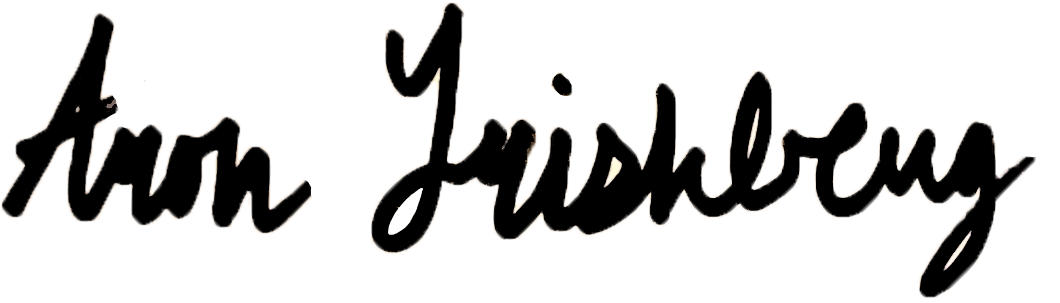 Aron Yrishberg